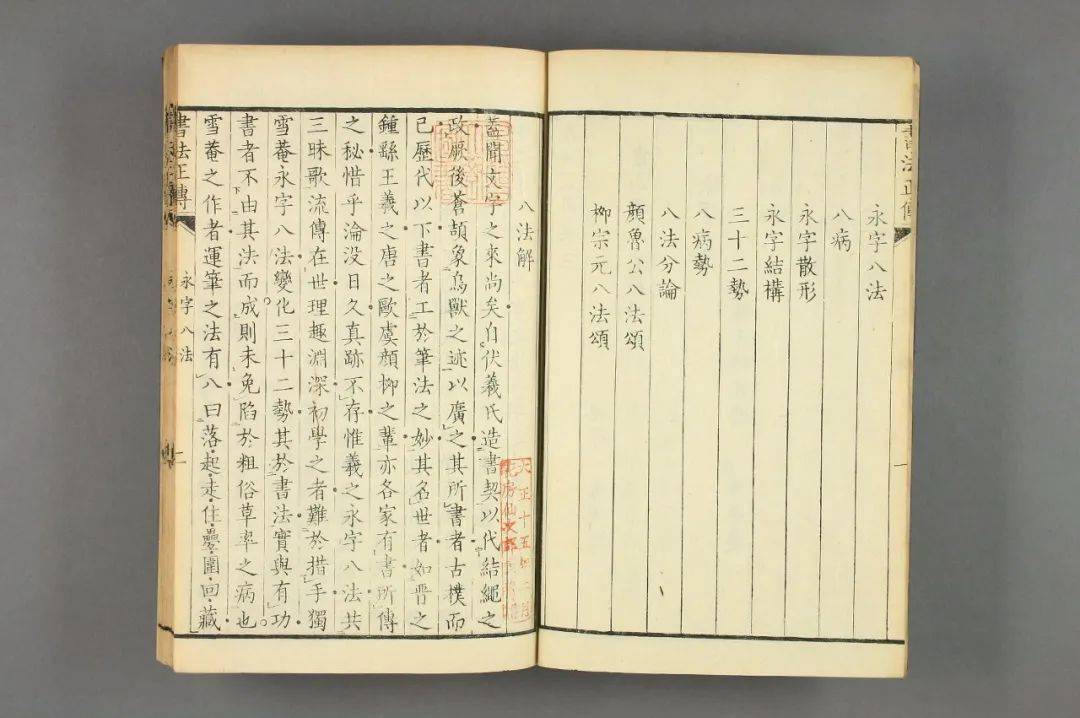 書法正傳
永字八法
八病
永字散形
永字結構
三十二勢
八病勢
八法分論
顏魯公八法頌
柳宗元八法頌
一
八法解
蓋聞文字之來尚矣自伏羲氏造書契以代結繩之
政厥後蒼頡象鳥獸之迹以廣之其所書者古樸而
已歷代以下書者工於筆法之妙其名世者如晋之
鍾繇王羲之唐之歐虞顏柳之輩亦各家有書所傳
之秘惜乎淪没日久真跡不存惟羲之永字八法共
三昧歌流傳在世理趣淵深初學之者難於措手獨
雪菴永字八法變化三十二勢其於書法實與有功
書者不由其法而成則未免陷於粗俗草率之病也
雪菴之作者運筆之法有八曰落起走住疊圍回藏
書法正傳
永字八法
二
大正十五年
花房仙次郎